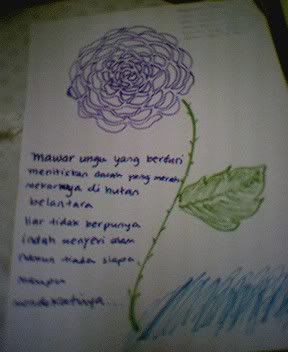 mawar ungu yang berduri
menitiskan darah yang merah
mekarnya di hutan
belantara
liar tidak berpunya
indah menyeri alam
namun tiada siapa
mampu
mendekatinya....